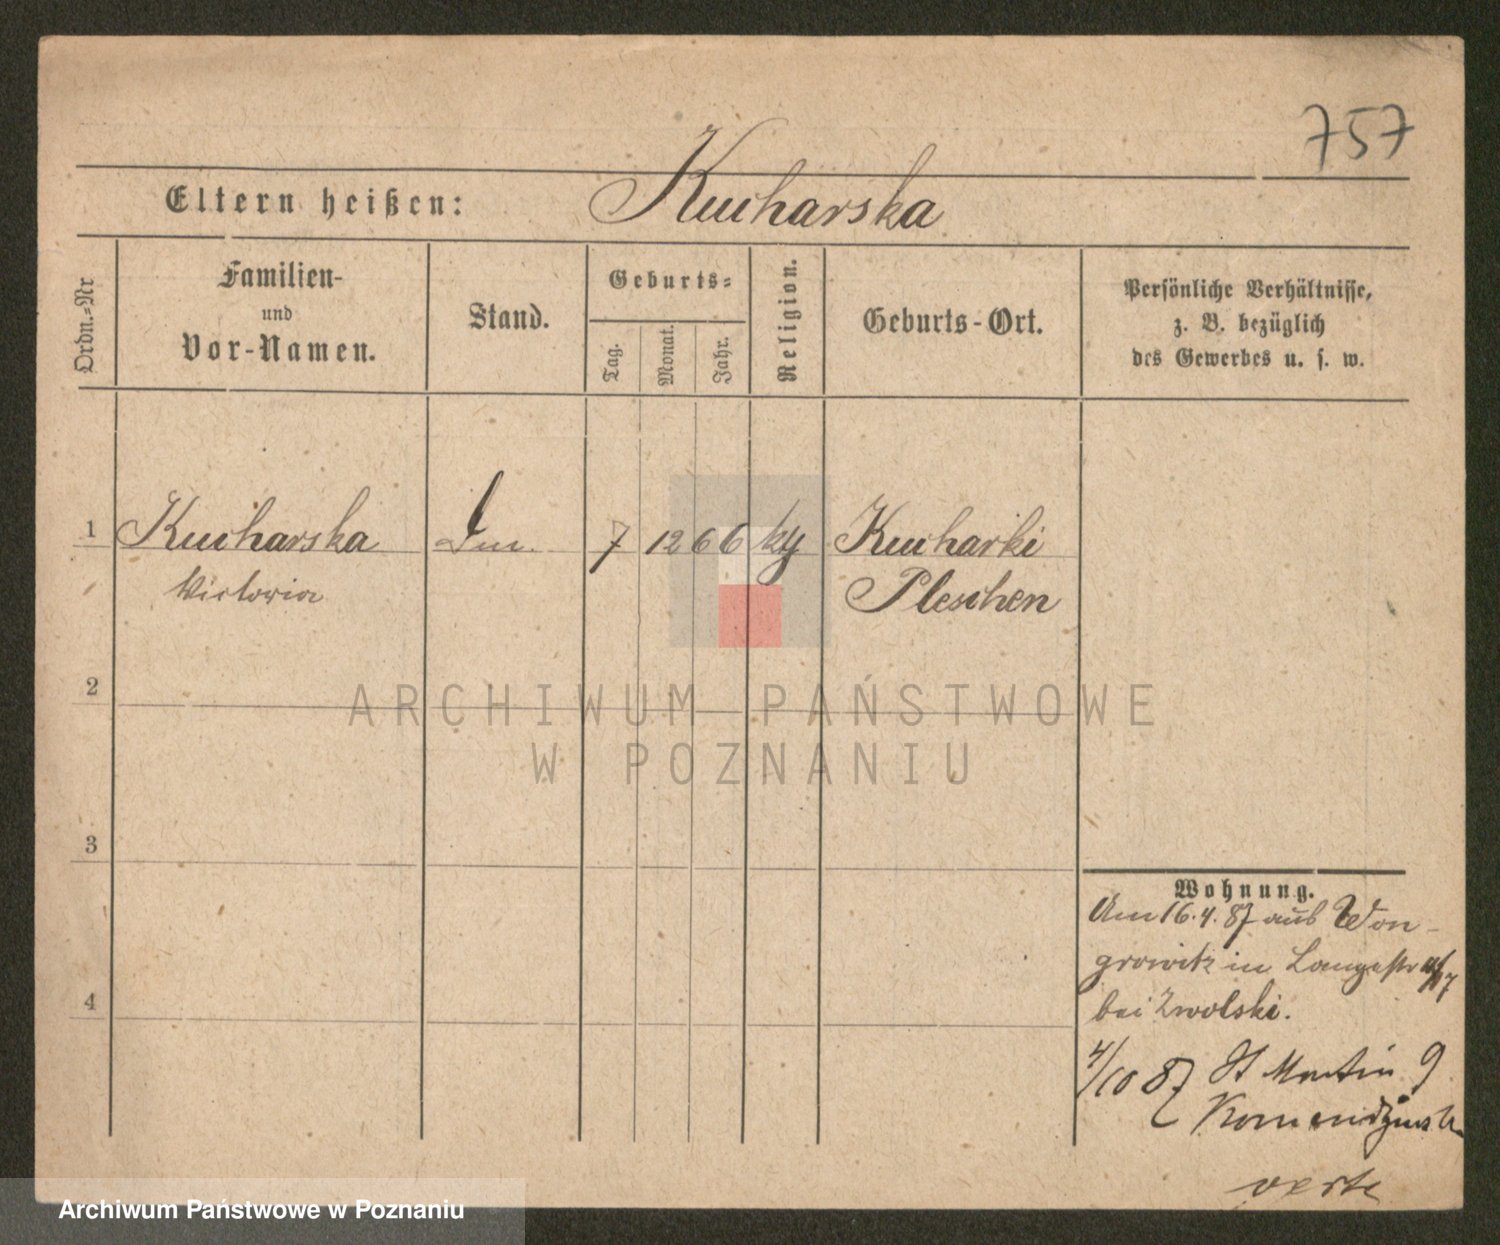 757
Eltern heißen: Kucharska
Ordn.-Nr
Familien-
und
Vor-Namen.
Stand.
Geburts-
Tag.
Monat.
Jahr.
Religion.
Geburts-Ort.
Persönliche Verhältnisse,
z. B. bezüglich
des Gewerbes u. s. w.
1 Kucharska 7 12 66 Kucharki
Victoria Pleschen
2
3
4
ARCHIWUM PAŃSTWOWE
W POZNANIU
Wohnung.
Am 16.4.87 aus Won-
growitz in Langestr
bei Zwolski.
4/10 87 St Martin 9
verte
Archiwum Państwowe w Poznaniu